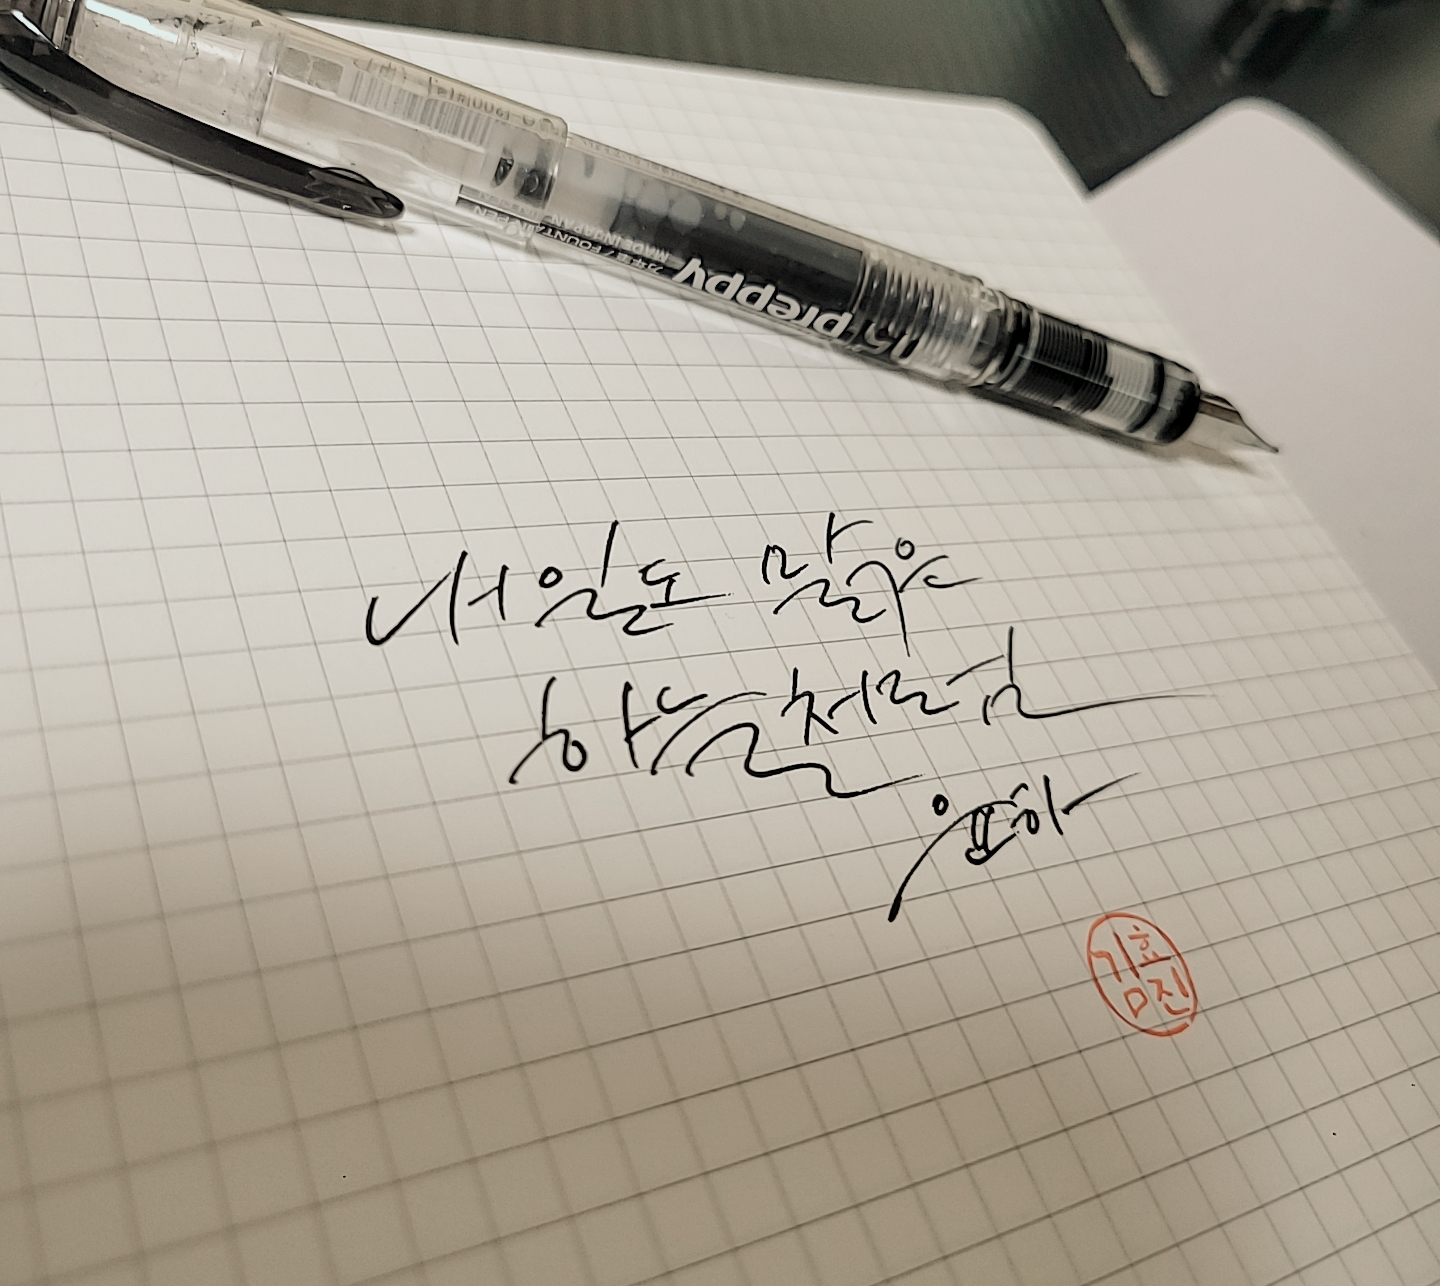 내일도 맑은
하늘처럼
김효진
preppy
만년필 / FOUNTAIN PEN
MADE IN JAPAN